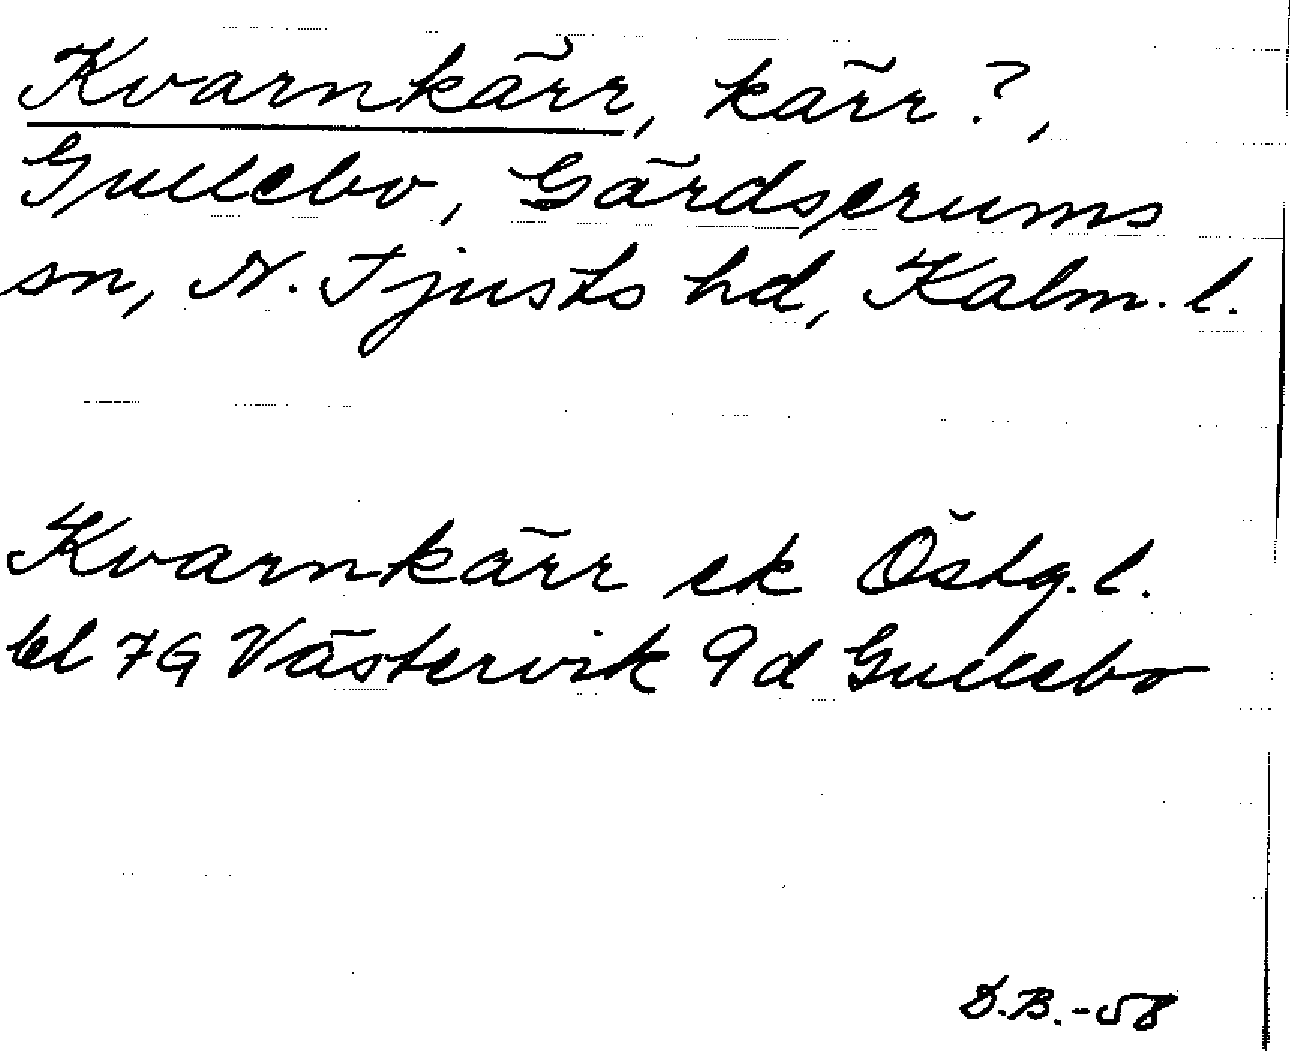 Kvarnkärr, kärr?,
Gullebo, Gärdserums
sn, N. Tjusts hd, Kalm. l.
Kvarnkärr ek Östg. l.
bl 7G Västervik 9d Gullebo
D.B.-58